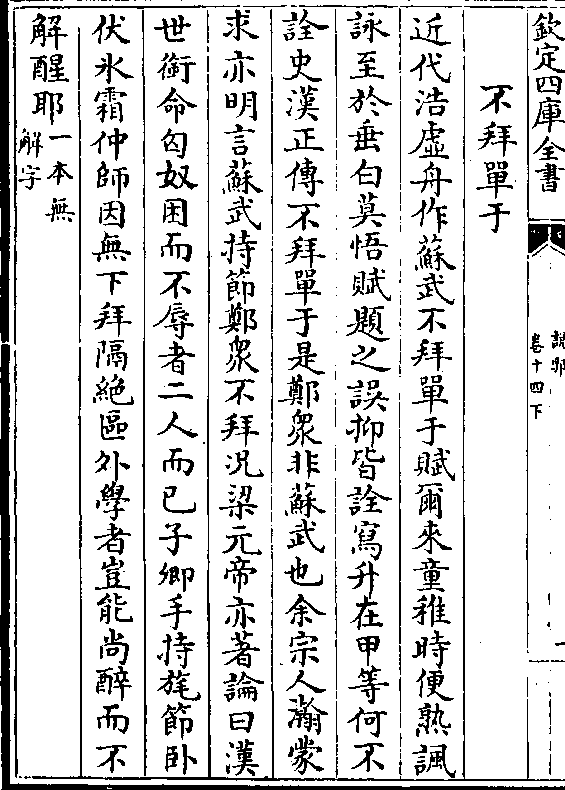 欽定四庫全書
說郛
卷十四下
不拜單于
近代浩虛舟作蘇武不拜單于賦爾來童稚時便熟諷
詠至於垂白莫悟賦題之誤抑皆詮寫升在甲等何不
詮史漢正傳不拜單于是鄭眾非蘇武也余宗人瀚蒙
求亦明言蘇武持節鄭眾不拜况梁元帝亦著論曰漢
世銜命匈奴困而不辱者二人而已子卿手持旄節卧
伏氷霜仲師因無下拜隔絶區外學者豈能尚醉而不
解醒耶一本無
解字